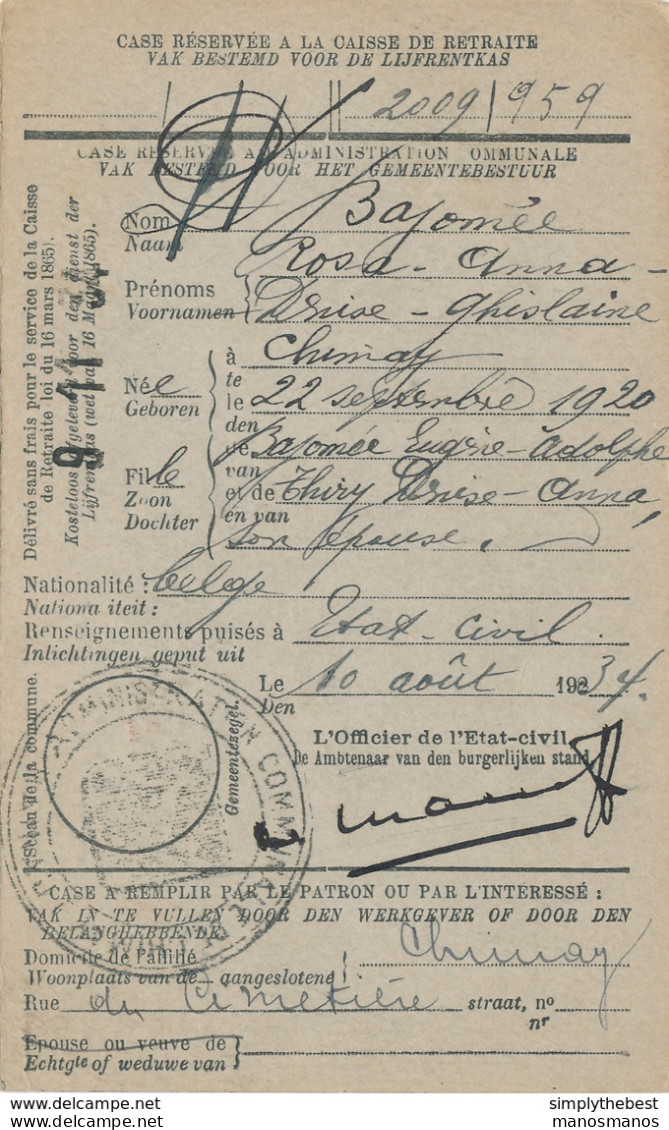 CASE RÉSERVÉE A LA CAISSE DE RETRAITE
VAK BESTEMD VOOR DE LIJFRENTKAS
2009 / 959
CASE RESERVÉE A L'ADMINISTRATION OMMUNALE
VAK BESTEMD VOOR HET GEMEENTEBESTUUR
Nom
Naam
Bajomée
Rosa - Anna -
Prénoms
Voornamen
Denise - Ghislaine
à
te
Chimay
Née
Geboren
le
den
22 septembre 1920
de
van
Bajomée Eugène-Adolphe
Fille
Zoon
Dochter
et de
en van
Thiry Denise-Anna,
son épouse.
Nationalité : belge
Nationa iteit :
Renseignements puisés à Etat-civil.
Inlichtingen geput uit
Le
Den
10 août 1934.
L'Officier de l'Etat-civil
De Ambtenaar van den burgerlijken stand
Délivré sans frais pour le service de la Caisse
de Retraite loi du 16 mars 1865).
Kosteloos afgeleverd voor den dienst der
Lijfrentkas (wet van 16 Maart 1865).
Sceau de la commune.
Gemeentezegel.
ADMINISTRATION COMMUNALE
CASE A REMPLIR PAR LE PATRON OU PAR L'INTERESSÉ :
VAK IN TE VULLEN DOOR DEN WERKGEVER OF DOOR DEN
BELANGHEBBENDE
Domicile de l'affilié
Woonplaats van de aangeslotene
Chimay
Rue du Cimetière straat, no
nr
Epouse ou veuve de
Echtgte of weduwe van
simplythebest
manosmanos